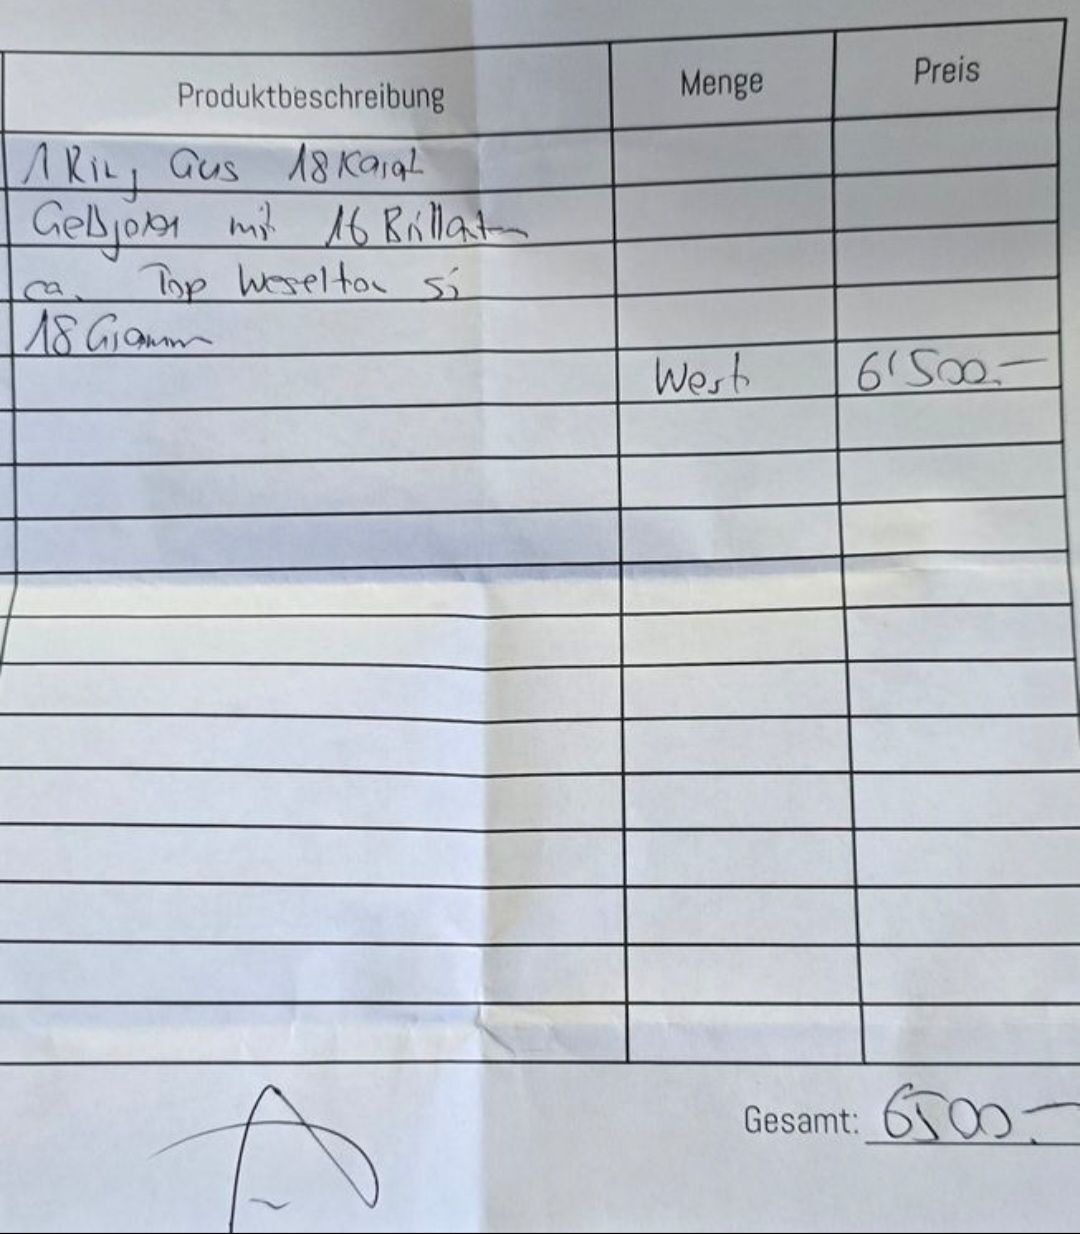 Produktbeschreibung Menge Preis
1 Ring aus 18 Karat
Gelbgold mit 16 Brillanten
ca. Top Weselton si
18 Gramm
Wert 6'500.-
Gesamt: 6500.-